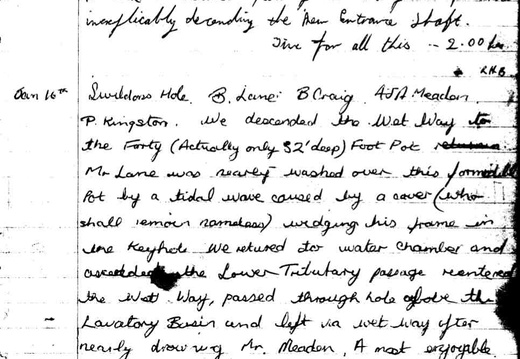 inexplicably descending the New Entrance Shaft.
Time for all this - 2.00 hrs
Jan 16th Swildons Hole. B. Lane. B Craig. A.J.A. Meaden.
P. Kingston. We descended the Wet Way to
the Forty (Actually only 32' deep) Foot Pot
Mr Lane was nearly washed over this formidable
Pot by a tidal wave caused by a caver (who
shall remain nameless) wedging his frame in
the Keyhole. We returned to water chamber and
ascended the Lower Tributary passage reentered
the Wet Way, passed through hole above the
Lavatory Basin and left via wet way after
nearly drowning Mr. Meaden. A most enjoyable